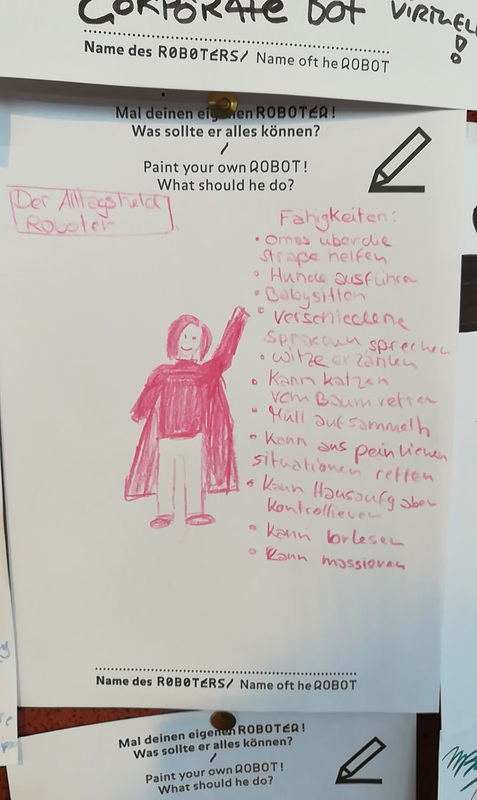 CORPORATE BOT VIRTUELL!
Name des ROBOTERS/ Name oft he ROBOT
Mal deinen eigenen ROBOTER!
Was sollte er alles können?
/
Paint your own ROBOT!
What should he do?
Der Alltagsheld
Roboter
Fähigkeiten:
• Omas über die
straße helfen
• Hunde ausführen
• Babysitten
• verschiedene
sprachen sprechen
• witze erzählen
• Kann katzen
vom Baum retten
• Müll aufsammeln
• Kann aus peinlichen
situationen retten
• Kann Hausaufgaben
kontrollieren
• Kann vorlesen
• Kann massieren
Name des ROBOTERS/ Name oft he ROBOT
Mal deinen eigenen ROBOTER!
Was sollte er alles können?
/
Paint your own ROBOT!
What should he do?